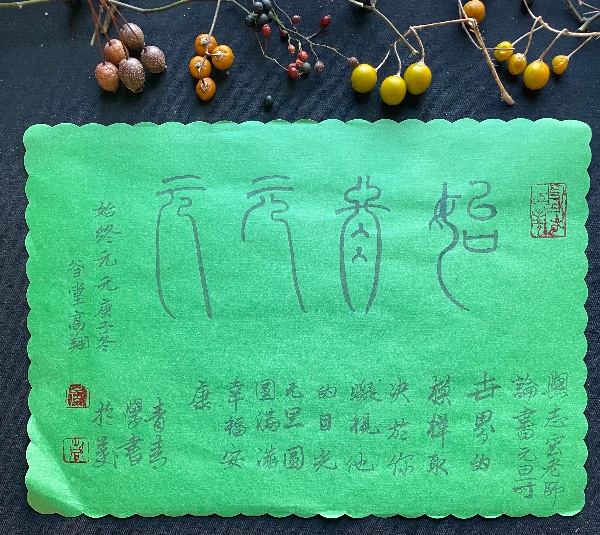 始終元元
始終元元庚子冬
谷堂高翔
與志雲老師
論書元旦時
世界的
模樣取
決於你
凝視他
的目光
圓
圓滿滿
幸福安
康
青青
學書
於